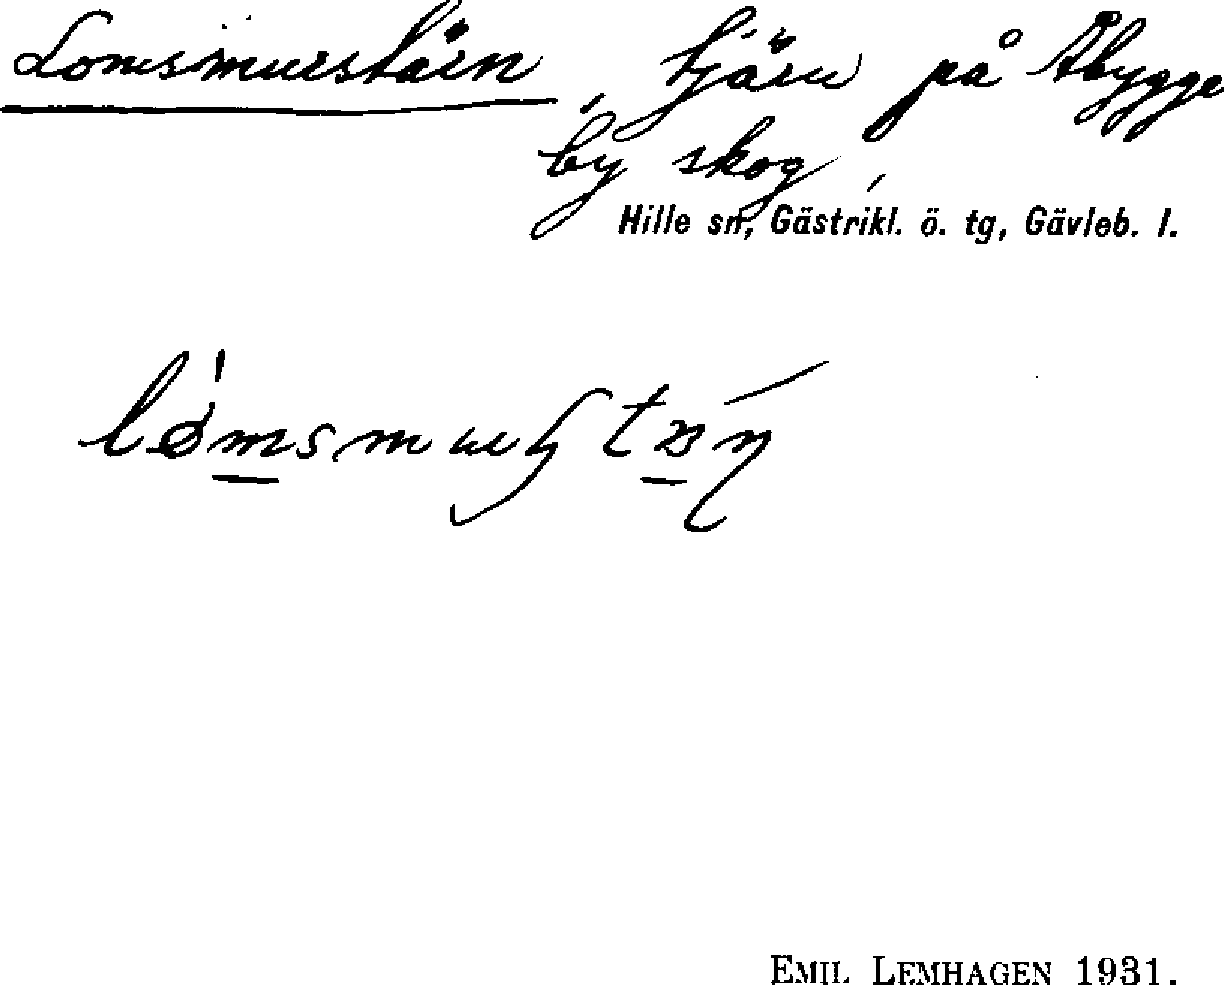 Lomsmurstärn, tjärn på Åbygge
by skog,
Hille sn, Gästrikl. ö. tg, Gävleb. l.
EMIL LEMHAGEN 1931.